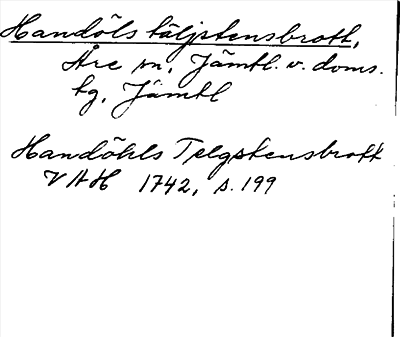 Handöls täljstensbrott,
Åre sn, Jämtl. v. doms.
tg, Jämtl
Handöhls Telgstensbrott
VAH 1742, s. 199